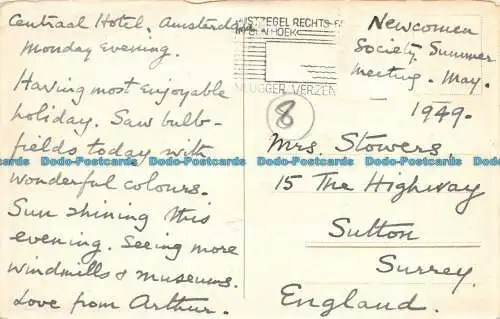 Centraal Hotel, Amsterdam
Monday Evening.
Having most enjoyable
holiday. Saw bulb-
fields today with
wonderful colours.
Sun shining this
evening. Seeing more
windmills & museums.
Love from Arthur.
POSTZEGEL RECHTS
HOEK
VLUGGER VERZEN
8
Newcomen
Society Summer
meeting. May.
1949.
Mrs. Stowers.
15 The Highway
Sutton
Surrey.
England.
Dodo-Postcards Dodo-Postcards Dodo-Postcards Dodo-Postcards